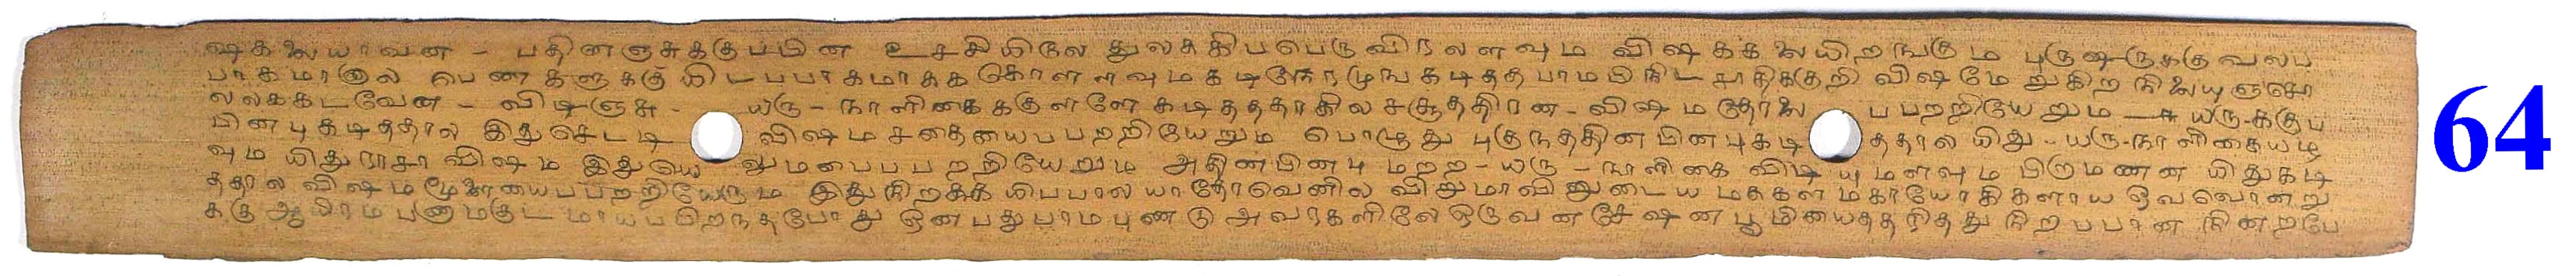 ஷகலையாவன - பதினஞசுககுபபின உசசியிலே துலககிபபெருவிரலளவும விஷககலையிறஙகும புருஷருககு வலப
பாகமாகுல பெணகளுககு யிடபபாகமாகக கொளளவும கடிநேரமுங கடிதத பாமபிநிட சாதிககுறி விஷமேறுகிற நிலையுஞசொ
லலககடவேன - விடிஞசு - யரு - நாளிகைககுளளே கடிததாகில சசூததிரன - விஷம தோலை பபறறியேறும - ச யரு-ககுப
பின பு கடிததால இது செடடி விஷம சதையைபபறறியேறும பொழுது புகுநததின பின பு கடி ததால யிது - யரு-நாளிகையள
வும யிது ராசா விஷம இது யெ லுமபைபபறறியேறும அதின பின பு மறற - யரு - நாளிகை விடி யுமளவும பிறுமணன யிது கடி
ததால விஷம மூளையைபபறறியேறும இது நிறகக யிபபால யாதோவெனில விறுமாவினுடைய மககள மகாயோகிகளாய ஒவவொனறு
ககு ஆயிரம பணுமகுடமாயபபிறநதபோது ஒனபது பாமபுணடு அவரகளிலே ஒருவன சேஷன பூமியைதத ரிதது நிறபபான நினறபே